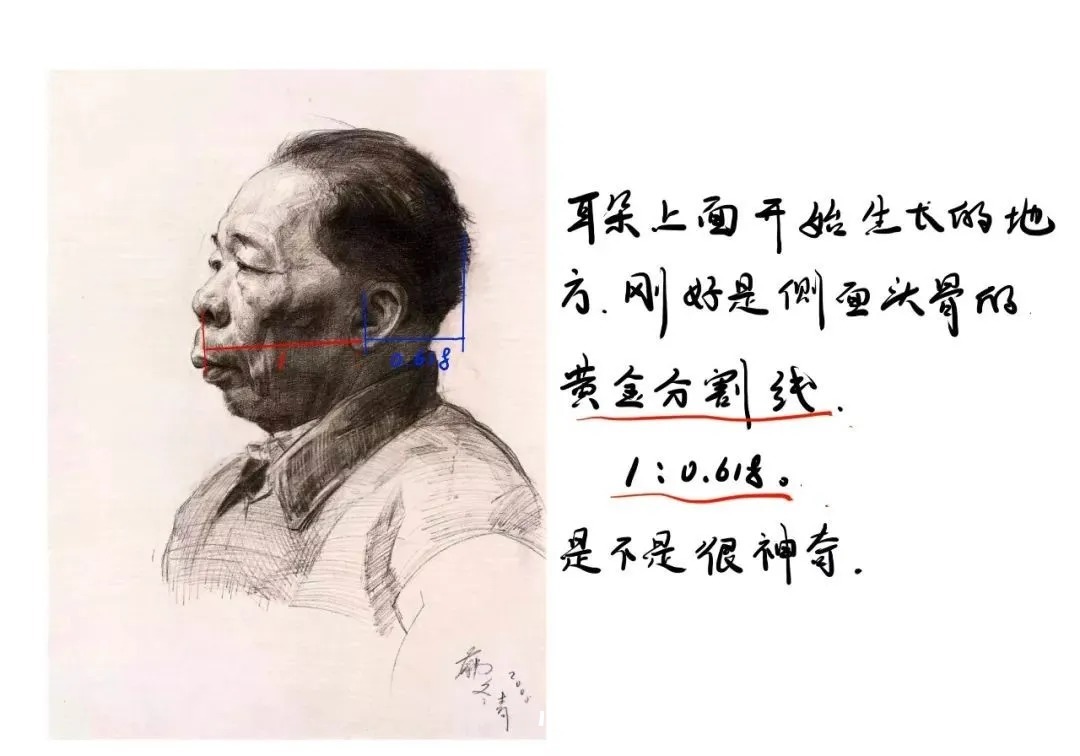 1
0.618
耳朵上面开始生长的地
方.刚好是侧面头骨的
黄金分割线.
1:0.618。
是不是很神奇.
200